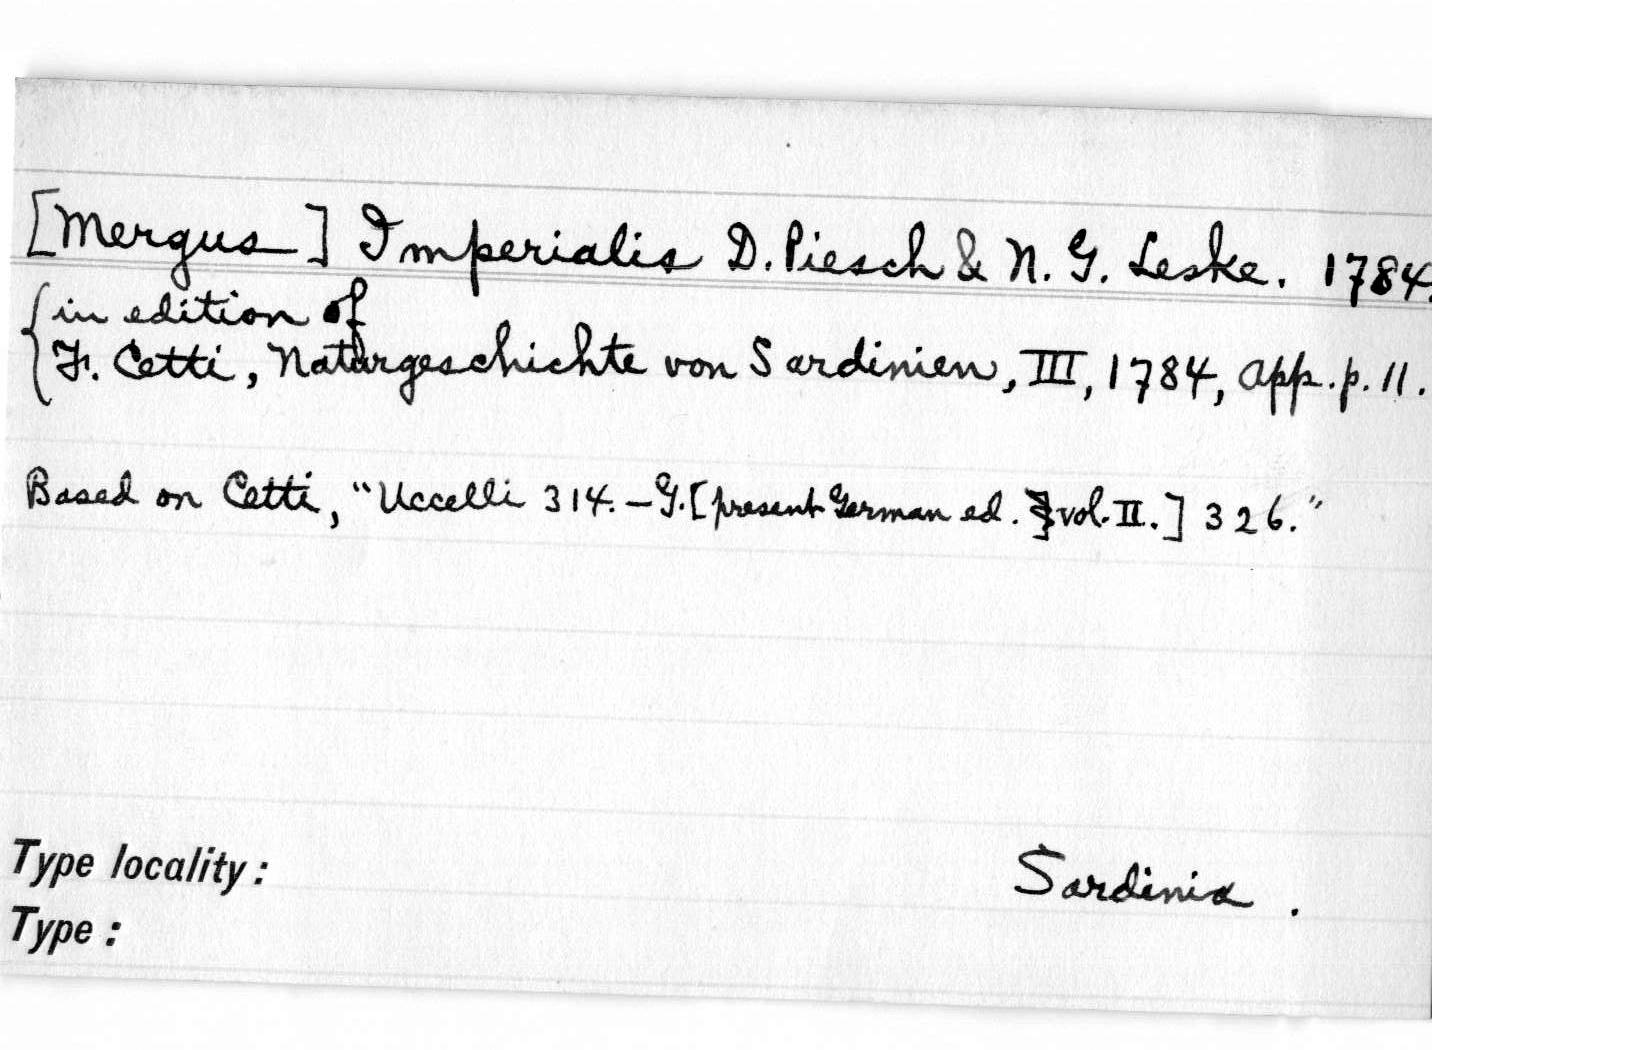 [Mergus] Imperialis D. Piesch & N. G. Leske. 1784.
in edition of
F. Cetti, Naturgeschichte von Sardinien, III, 1784, app. p. 11.
Based on Cetti, "Uccelli 314. – G. [present German ed. vol. II.] 326."
Type locality: Sardinia.
Type: